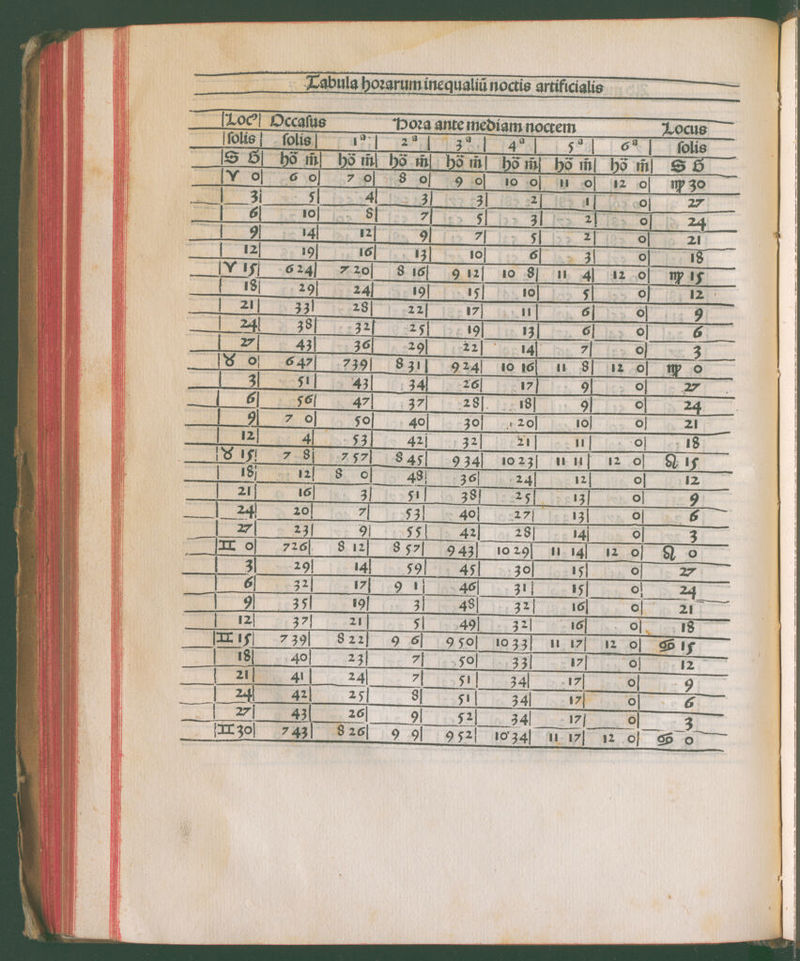 Tabula horarum inequaliū noctis artificialis
Locꝰ Occasus Hora ante mediam noctem Locus
solis solis 1ª 2ª 3ª 4ª 5ª 6ª solis
S G̅ hō m̄ hō m̄ hō m̄ hō m̄ hō m̄ hō m̄ hō m̄ S G̅
♈ 0 6 0 7 0 8 0 9 0 10 0 11 0 12 0 ♍ 30
3 5 4 3 3 2 1 0 27
6 10 8 7 5 3 2 0 24
9 14 12 9 7 5 2 0 21
12 19 16 13 10 6 3 0 18
♈ 15 6 24 7 20 8 16 9 12 10 8 11 4 12 0 ♍ 15
18 29 24 19 15 10 5 0 12
21 33 28 22 17 11 6 0 9
24 38 32 25 19 13 6 0 6
27 43 36 29 22 14 7 0 3
♉ 0 6 47 7 39 8 31 9 24 10 16 11 8 12 0 ♍ 0
3 51 43 34 26 17 9 0 27
6 56 47 37 28 18 9 0 24
9 7 0 50 40 30 20 10 0 21
12 4 53 42 32 21 11 0 18
♉ 15 7 8 7 57 8 45 9 34 10 23 11 11 12 0 ♌ 15
18 12 8 0 48 36 24 12 0 12
21 16 3 51 38 25 13 0 9
24 20 7 53 40 27 13 0 6
27 23 9 55 42 28 14 0 3
♊ 0 7 26 8 12 8 57 9 43 10 29 11 14 12 0 ♌ 0
3 29 14 59 45 30 15 0 27
6 32 17 9 1 46 31 15 0 24
9 35 19 3 48 32 16 0 21
12 37 21 5 49 32 16 0 18
♊ 15 7 39 8 22 9 6 9 50 10 33 11 17 12 0 ♋ 15
18 40 23 7 50 33 17 0 12
21 41 24 7 51 34 17 0 9
24 42 25 8 51 34 17 0 6
27 43 26 9 52 34 17 0 3
♊ 30 7 43 8 26 9 9 9 52 10 34 11 17 12 0 ♋ 0